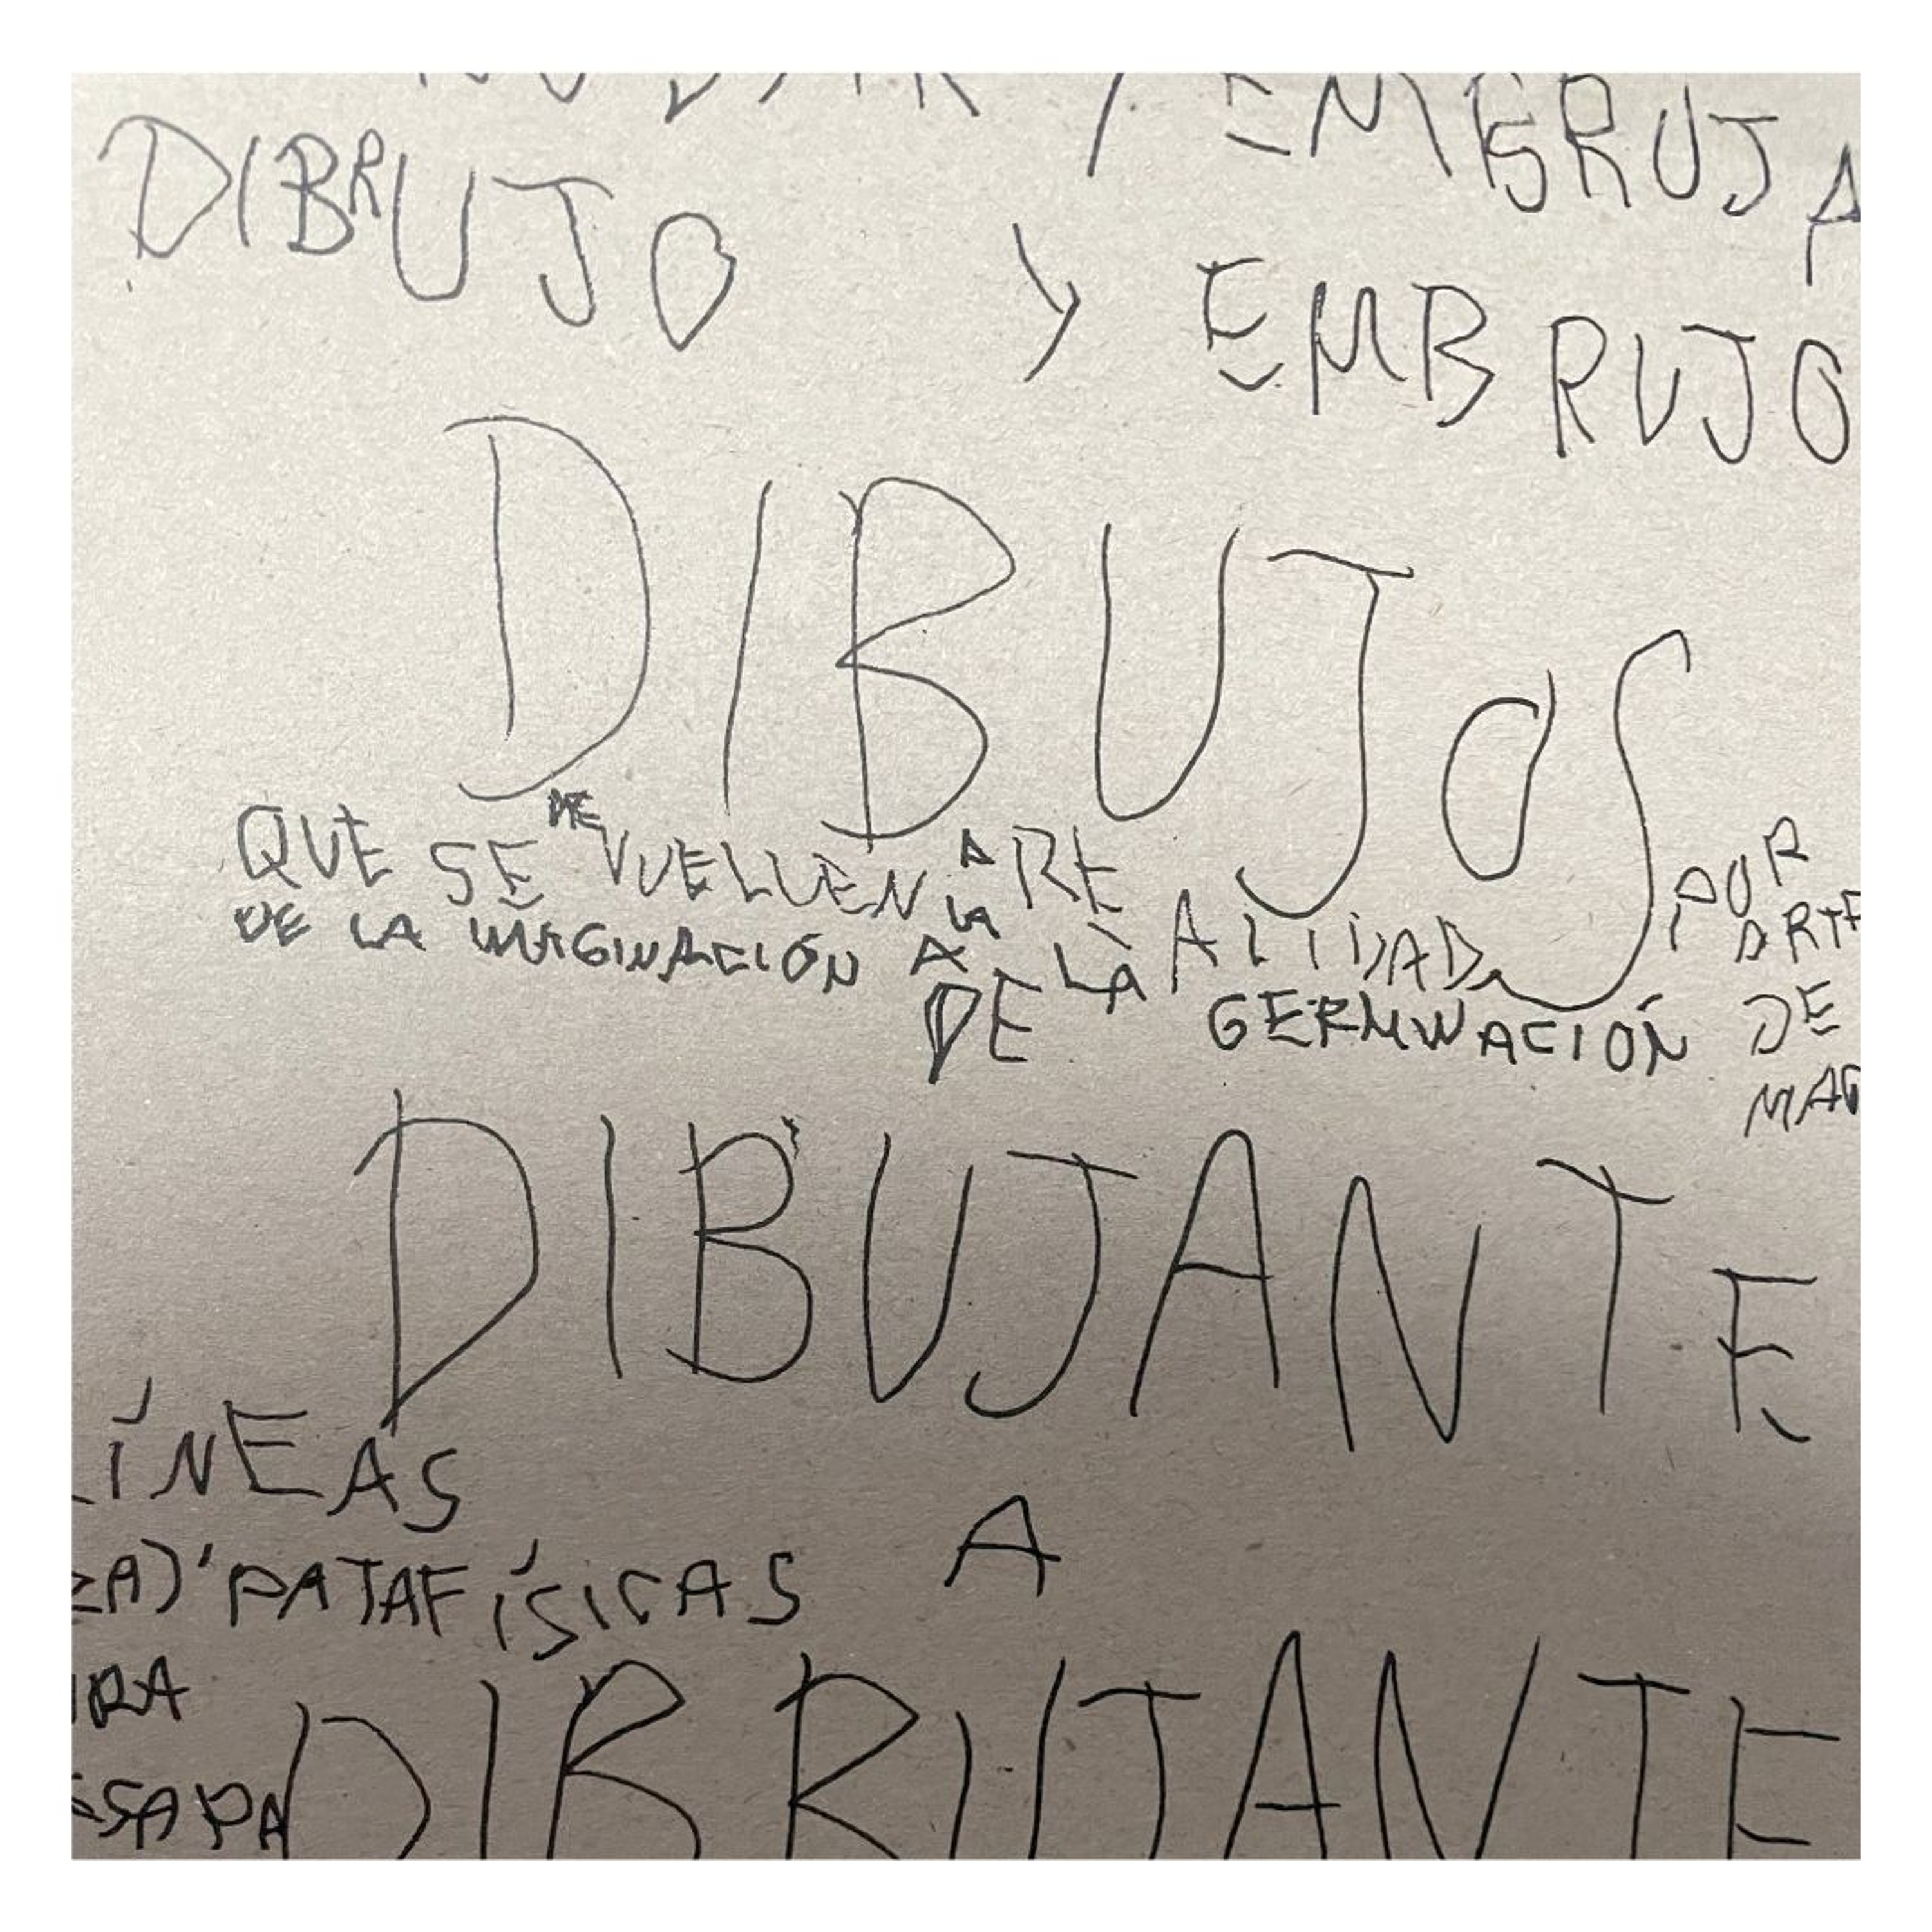 Y EMBRUJA
DIBRUJO Y EMBRUJO
DIBUJOS
QUE SE DEVUELVEN A LA REALIDAD POR
DE LA IMAGINACIÓN A LA ARTE
DE GERMINACIÓN DE
MAG
DIBUJANTE
LÍNEAS
A
ZA) 'PATAFÍSICAS
RA
DIBRUJANTE
SAPA